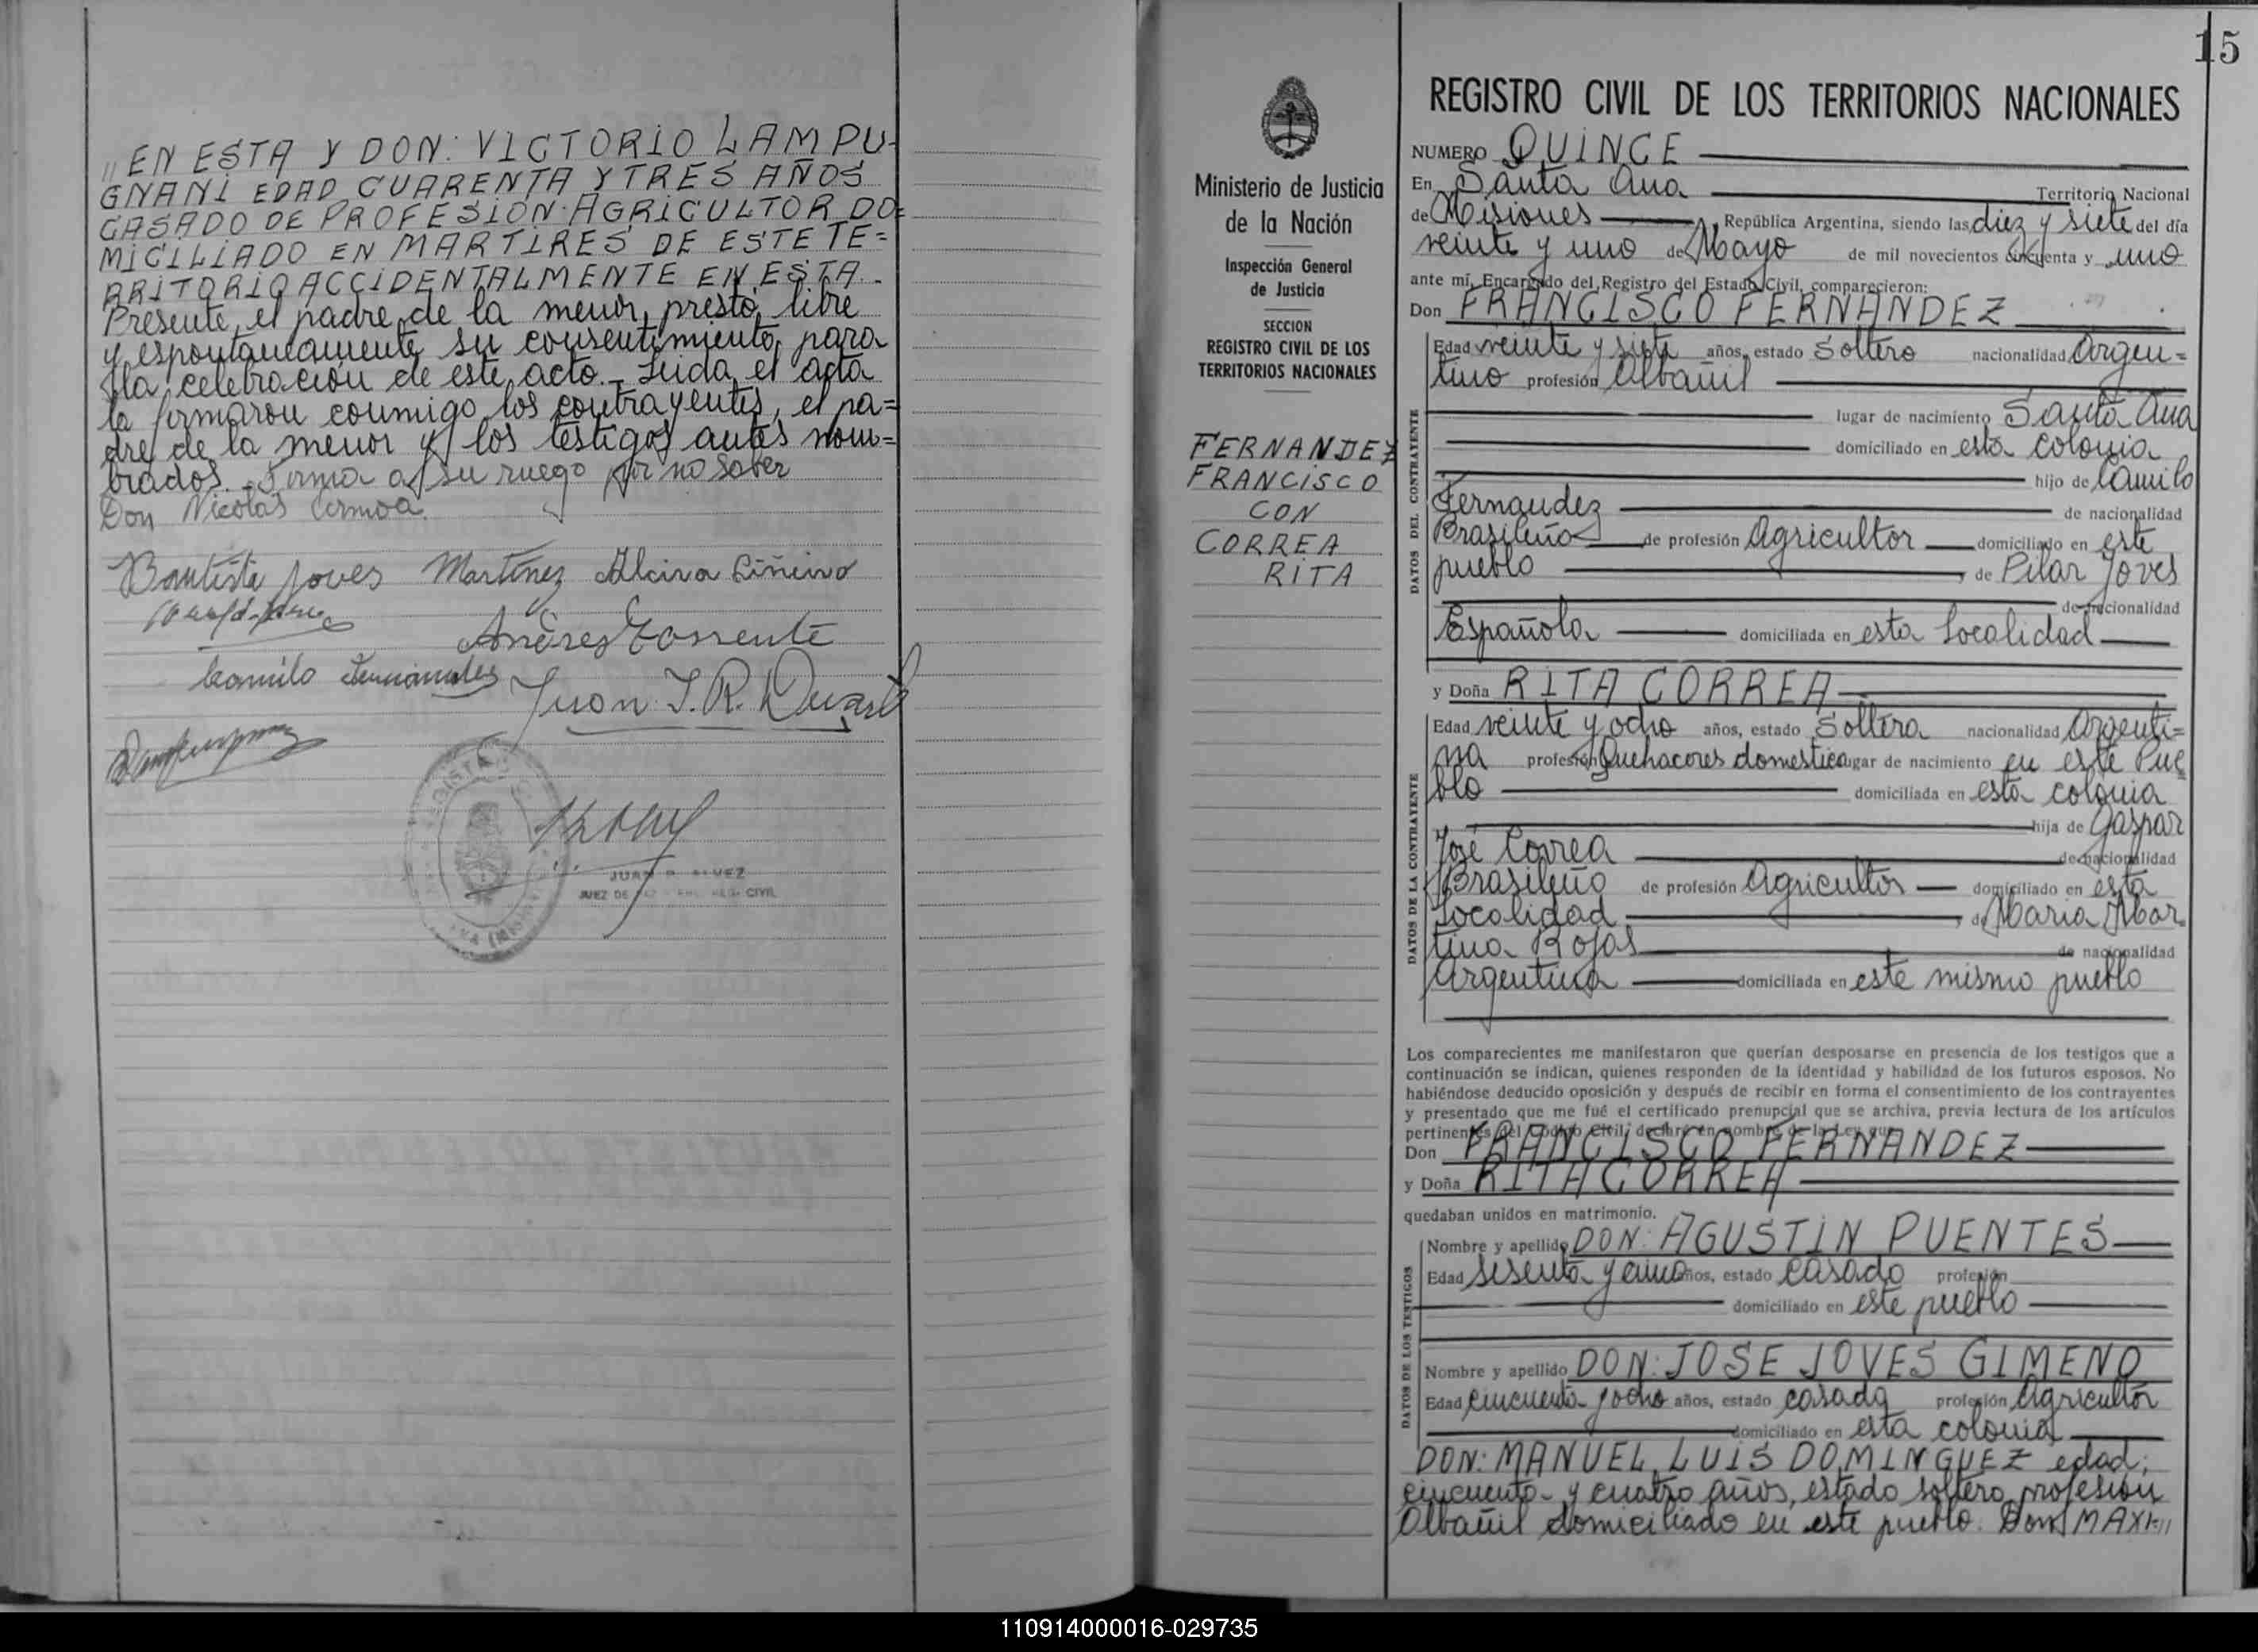 „EN ESTA Y DON: VICTORIO LAMPU-
GNANI EDAD CUARENTA Y TRES AÑOS
CASADO DE PROFESION AGRICULTOR DO=
MICILIADO EN MARTIRES DE ESTE TE=
RRITORIO ACCIDENTALMENTE EN ESTA.-
Presente, el padre de la menor, prestó, libre
y espontaneamente su consentimiento, para
la celebración de este acto.- Leida el acta
la firmaron conmigo los contrayentes, el pa=
dre de la menor y los testigos antes nom=
brados.- Firma a su ruego por no saber
Don Nicolás Cermoa.
Bautista Joves Martínez Alcira Piñeiro
Andres Torrente
Camilo Fernandes Juan J. R. Duarte
JUEZ DE CIVIL
15
REGISTRO CIVIL DE LOS TERRITORIOS NACIONALES
Ministerio de Justicia
de la Nación
Inspección General
de Justicia
SECCION
REGISTRO CIVIL DE LOS
TERRITORIOS NACIONALES
FERNANDEZ
FRANCISCO
CON
CORREA
RITA
NUMERO QUINCE
En Santa Ana Territorio Nacional
de Misiones, República Argentina, siendo las diez y siete del día
veinte y uno de Mayo de mil novecientos cincuenta y uno
ante mí, Encargado del Registro del Estado Civil, comparecieron:
Don FRANCISCO FERNANDEZ
DATOS DEL CONTRAYENTE
Edad veinte y siete años, estado Soltero nacionalidad Argen=
tino profesión Albañil
lugar de nacimiento Santa Ana
domiciliado en esta colonia
hijo de Camilo
Fernandez de nacionalidad
Brasileño de profesión Agricultor domiciliado en este
pueblo, de Pilar Joves
de nacionalidad
Española domiciliada en esta Localidad
y Doña RITA CORREA
DATOS DE LA CONTRAYENTE
Edad veinte y ocho años, estado Soltera nacionalidad Argenti=
na profesión Quehaceres domestica lugar de nacimiento en este Pue
blo domiciliada en esta colonia
hija de Gaspar
José Correa de nacionalidad
Brasileño de profesión Agricultor domiciliado en esta
Localidad, de Maria Mar
tina Rojas de nacionalidad
Argentina domiciliada en este mismo pueblo
Los comparecientes me manifestaron que querían desposarse en presencia de los testigos que a
continuación se indican, quienes responden de la identidad y habilidad de los futuros esposos. No
habiéndose deducido oposición y después de recibir en forma el consentimiento de los contrayentes
y presentado que me fué el certificado prenupcial que se archiva, previa lectura de los artículos
pertinentes del Código Civil, declaré en nombre de la Ley que
Don FRANCISCO FERNANDEZ
y Doña RITA CORREA
quedaban unidos en matrimonio.
DATOS DE LOS TESTIGOS
Nombre y apellido DON: AGUSTIN PUENTES
Edad sesenta y cinco años, estado casado profesión
domiciliado en este pueblo
Nombre y apellido DON: JOSE JOVES GIMENO
Edad cincuenta y ocho años, estado casado profesión Agricultor
domiciliado en esta colonia
DON: MANUEL LUIS DOMINGUEZ edad;
cincuenta y cuatro años, estado soltero, profesión
Albañil domiciliado en este pueblo. Don MAXI-„
110914000016-029735